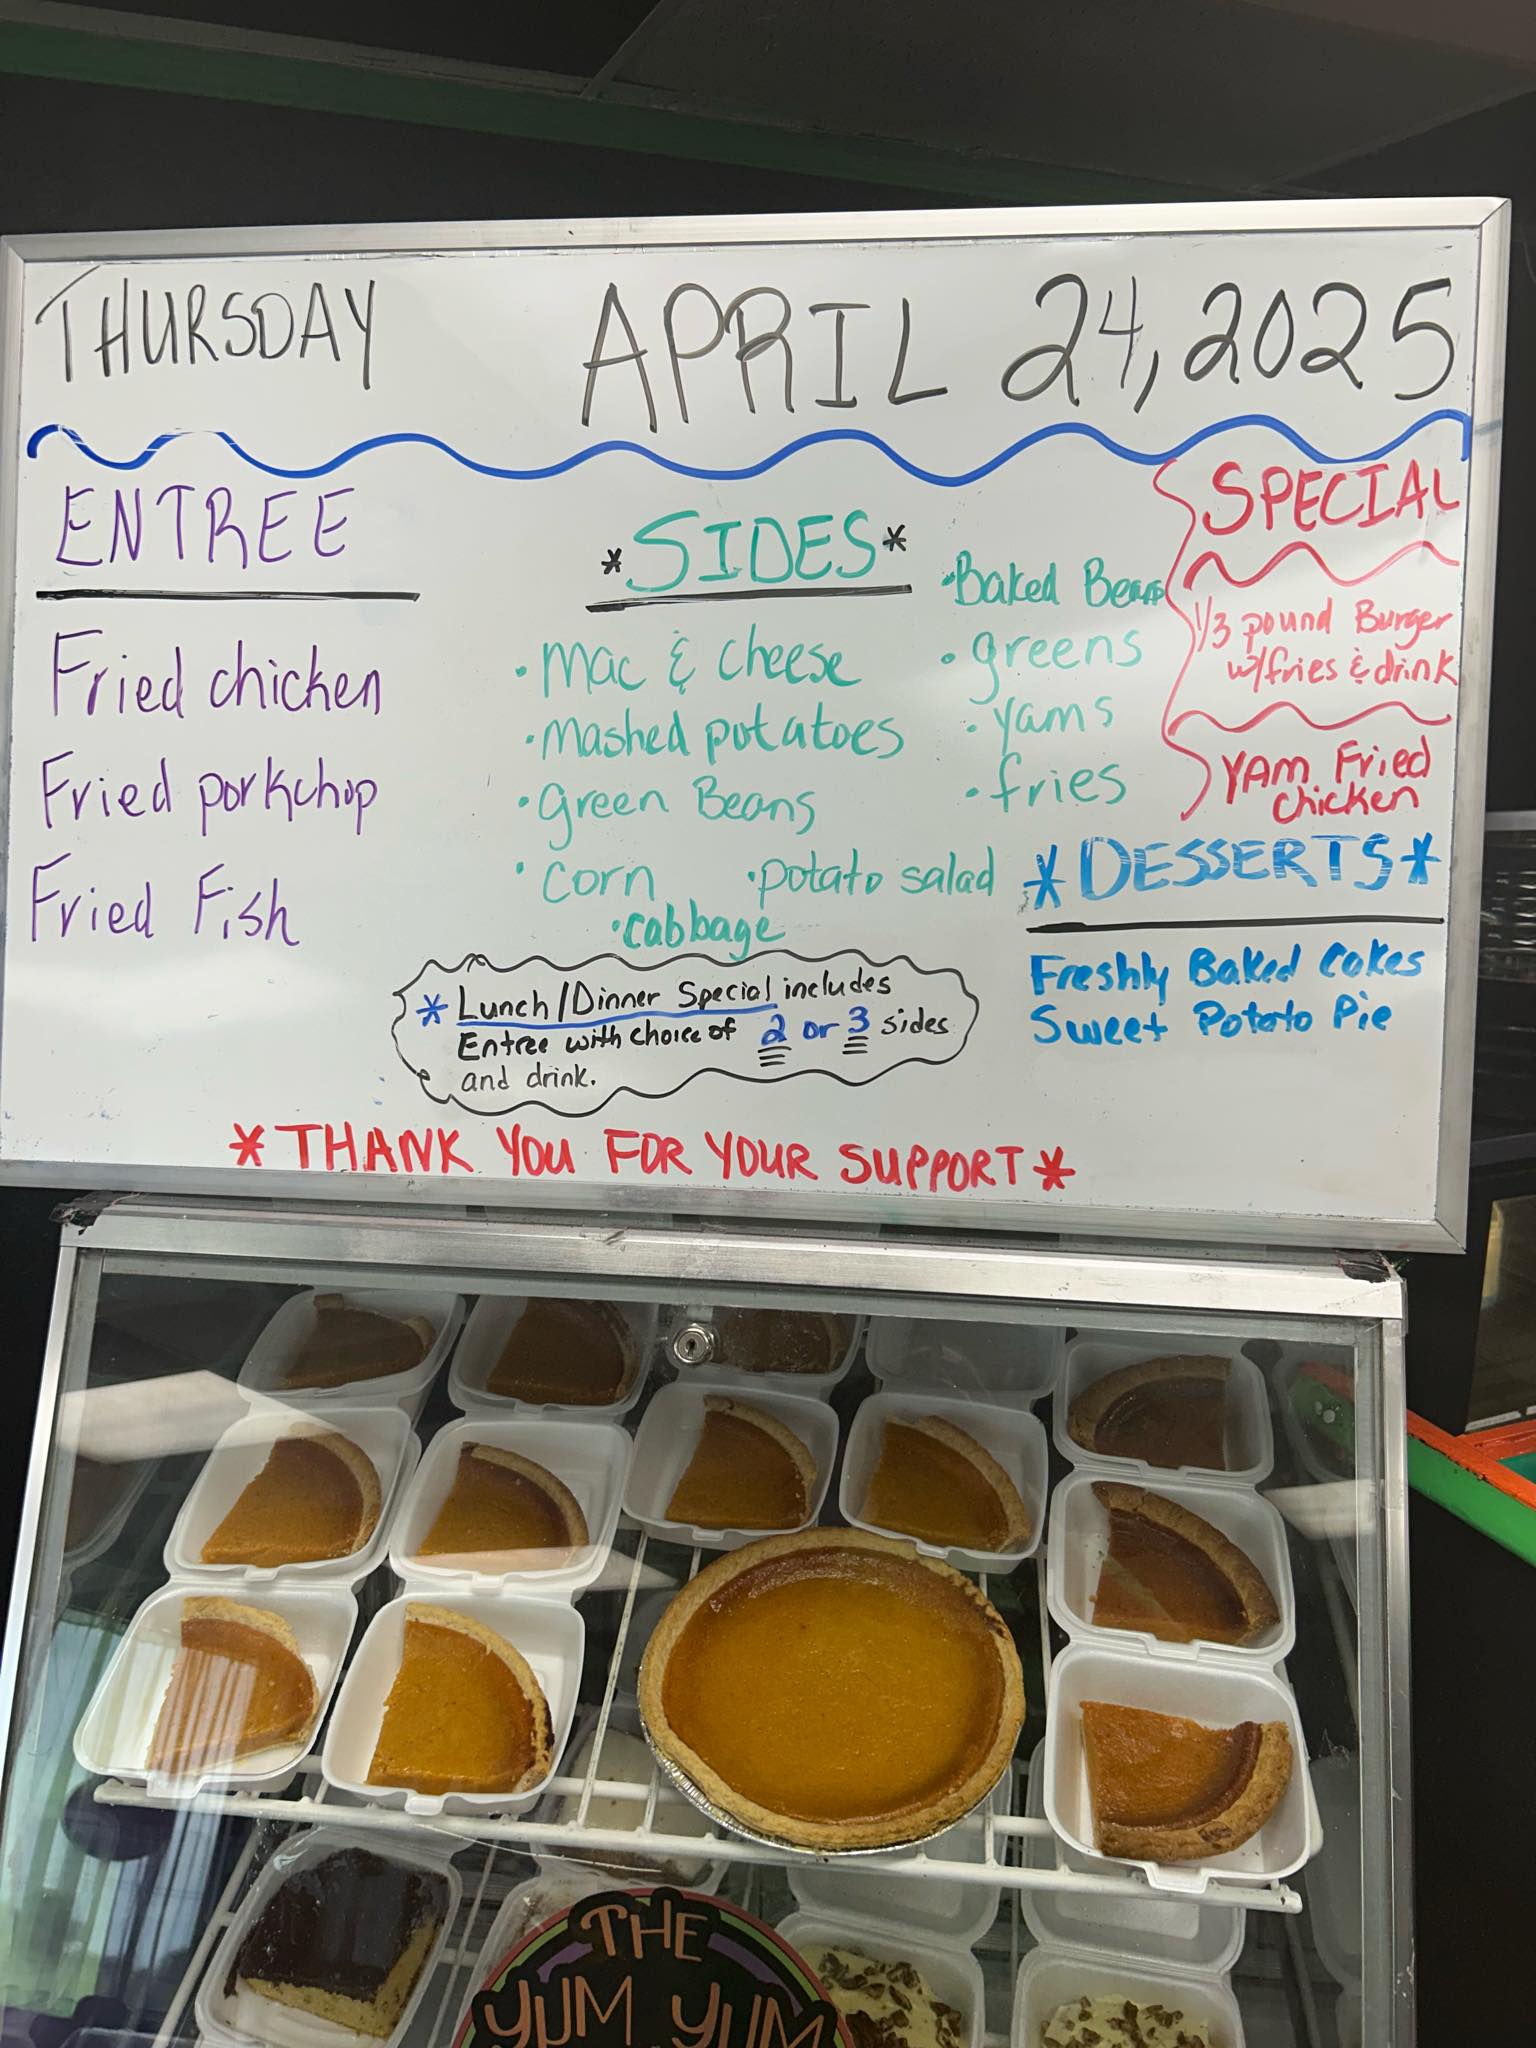 THURSDAY APRIL 24, 2025
ENTREE
Fried chicken
Fried porkchop
Fried Fish
*SIDES*
• Mac & cheese
• Mashed potatoes
• green Beans
• corn
• potato salad
• cabbage
• Baked Beans
• greens
• yams
• fries
SPECIAL
1/3 pound Burger
w/fries & drink
YAM Fried
chicken
*DESSERTS*
Freshly Baked Cakes
Sweet Potato Pie
* Lunch/Dinner Special includes
Entree with choice of 2 or 3 sides
and drink.
*THANK YOU FOR YOUR SUPPORT*
THE
YUM YUM